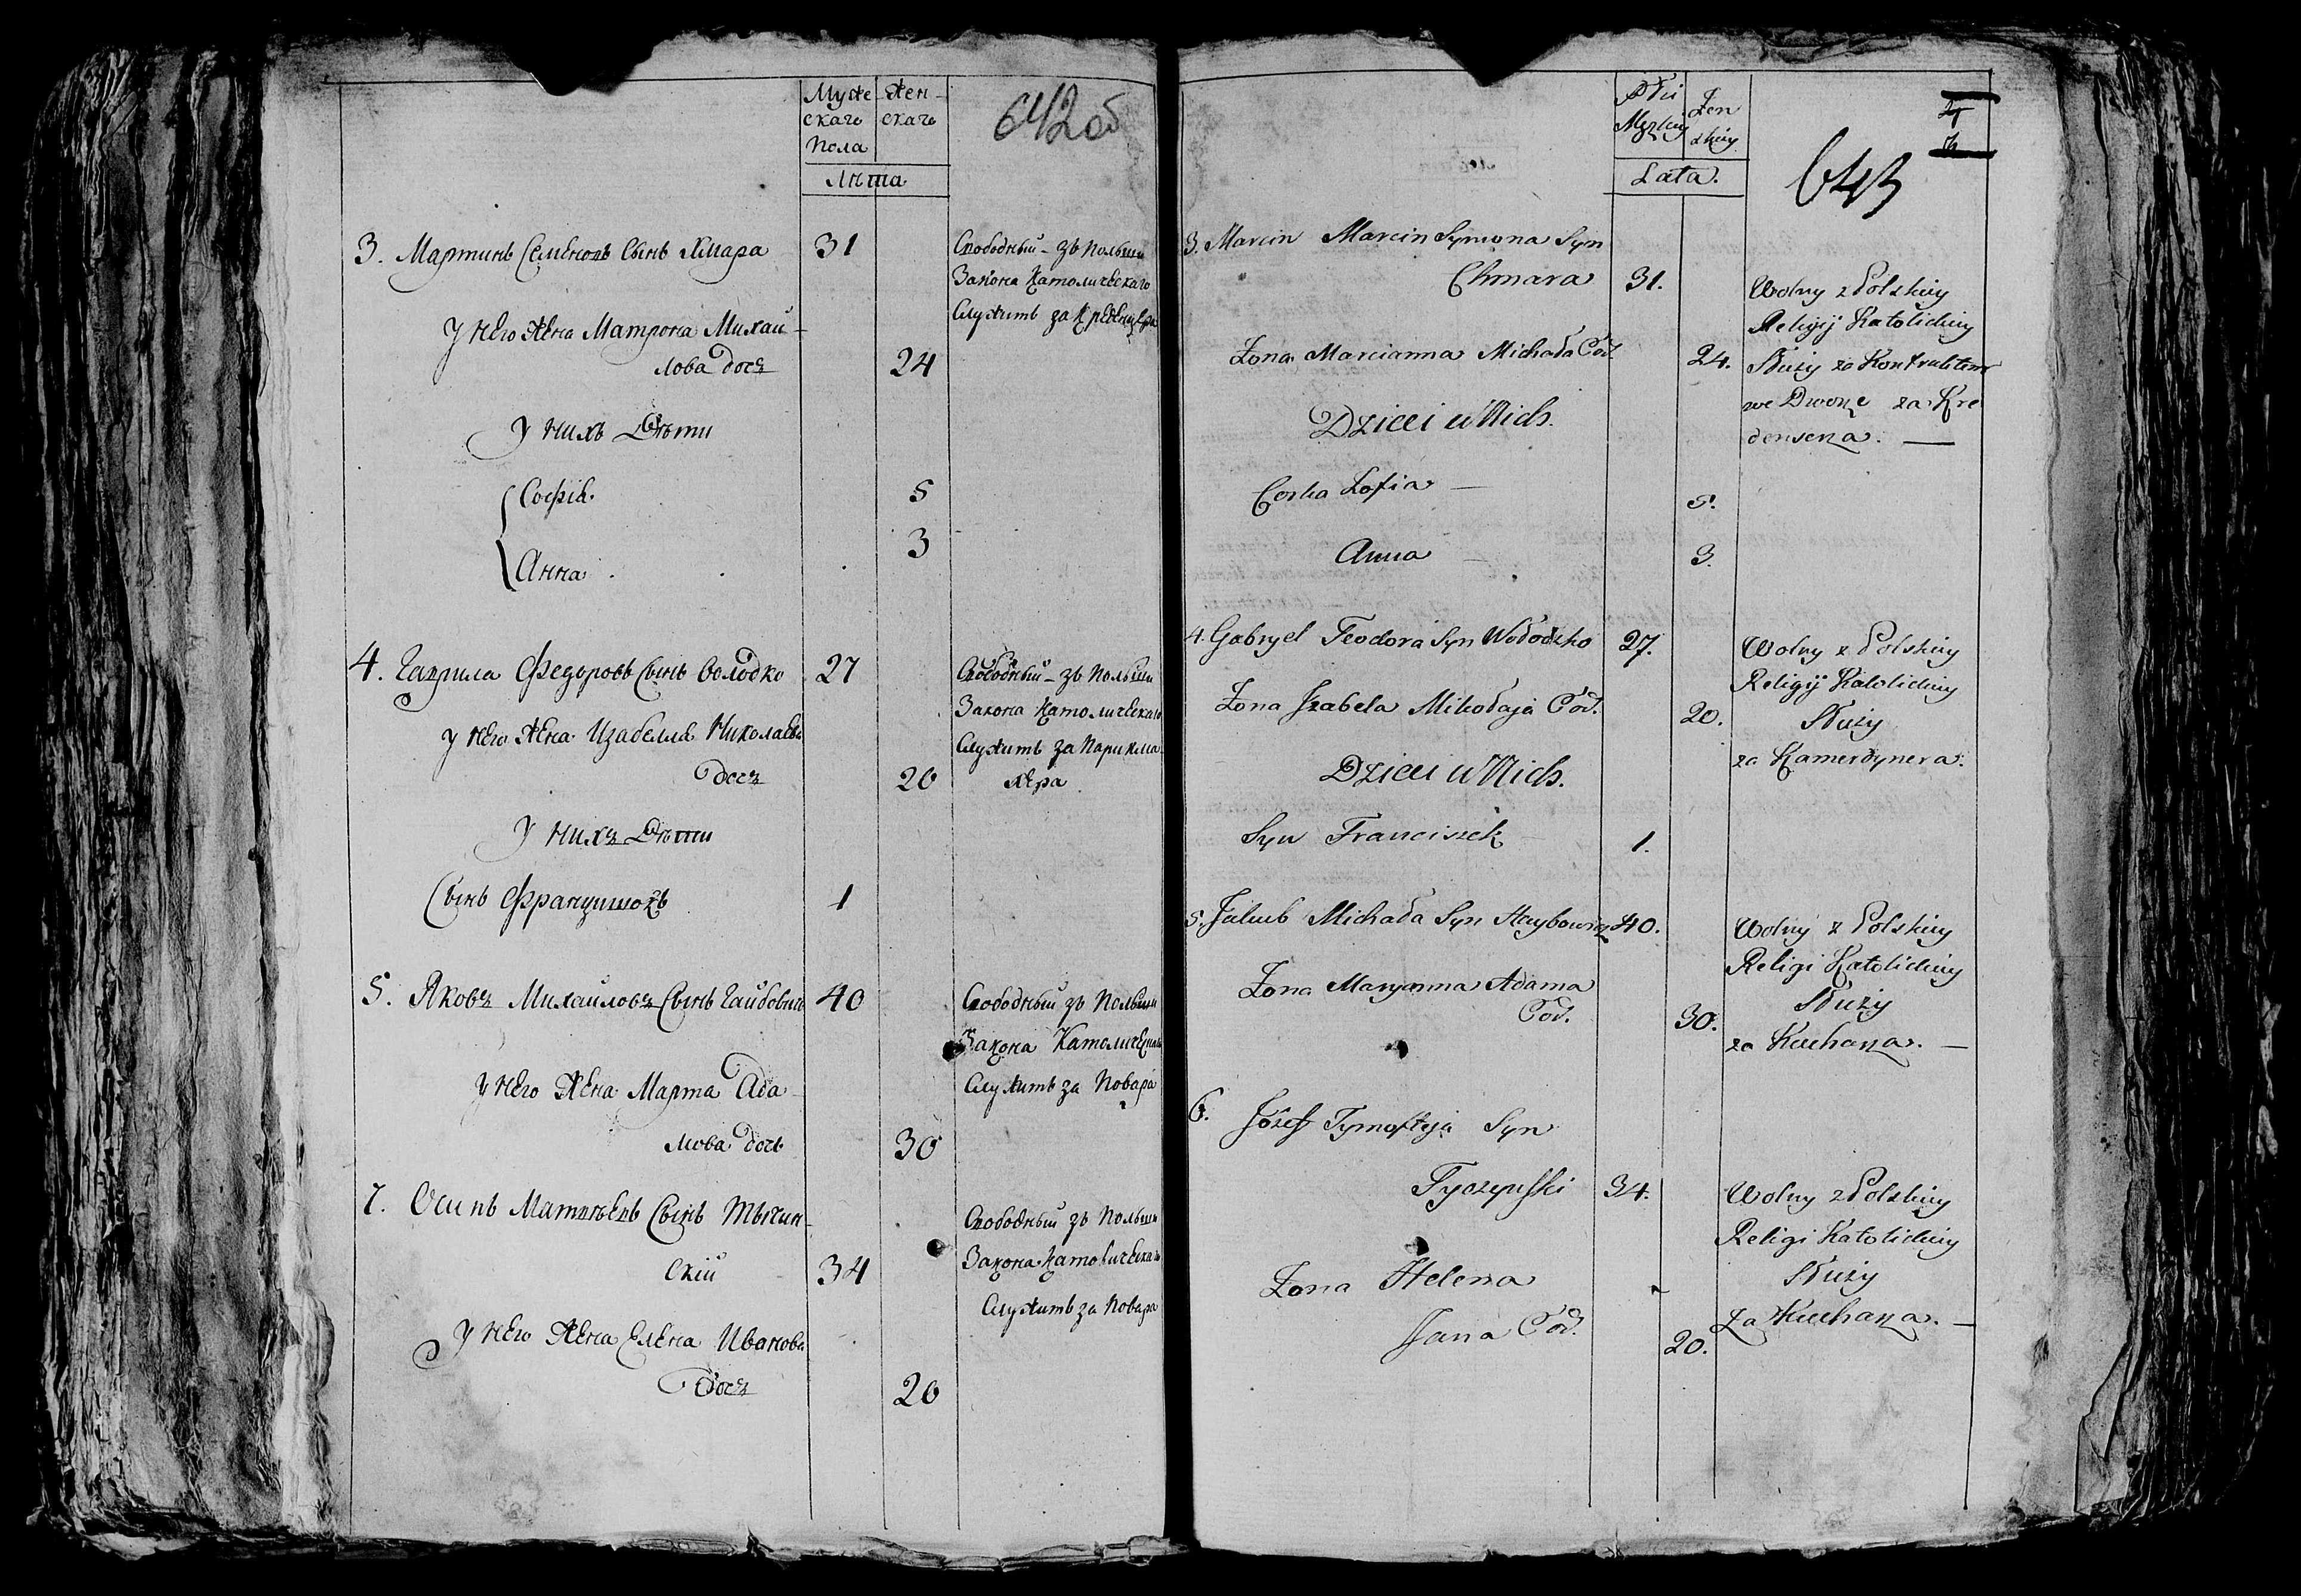 Муже
скаго
Пола
Жен-
скаго
642об
Лѣта
3. Мартинъ Семеновъ Сынъ Хмара 31
Свободный - зъ Польши
Закона Католическаго
Служитъ за Креденцера
У Него Жена Матрона Михай-
лова дочъ 24
У нихъ Дѣти
Софія 5
Анна 3
4. Гаврила Федоровъ Сынъ Володко 27
Свободный - зъ Польши
Закона Католическаго
Служитъ за Парикма
хера
У Него Жена Изабелла Николаева
дочъ 20
У нихъ Дѣти
Сынъ Францишокъ 1
5. Яковъ Михайловъ Сынъ Гайбовичъ 40
Свободный зъ Польши
Закона Католическаго
Служитъ за Повара
У Него Жена Марта Ада-
мова дочь 30
7. Осипъ Матвѣевъ Сынъ Тычин-
скій 34
Свободный зъ Польши
Закона Католическаго
Служитъ за Повара
У Него Жена Елена Иванова
дочъ 20
Płci
Męzkiy
Zen
skiey
Lata.
643
3. Marcin Marcin Symona Syn
Chmara 31.
Wolny z Polskiey
Religij Katolickiey
Służy za Kontraktem
we Dworze za Kre
denserza. —
Zona Marcianna Michała Cód. 24.
Dzieci u Nich.
Corka Zofia — 5.
Anna — 3.
4. Gabryel Teodora Syn Wołodzko 27.
Wolny z Polskiey
Religij Katolickiey
Służy
za Kamerdynera.
Zona Jzabela Mikołaja Cód. 20.
Dzieci u Nich.
Syn Franciszek 1.
5. Jakub Michała Syn Haybowicz 40.
Wolny z Polskiey
Religi Katolickiey
Służy
za Kucharza. —
Zona Maryanna Adama
Cód. 30.
6. Józef Tymofteja Syn
Tyczynski 34.
Wolny z Polskiey
Religi Katolickiey
Służy
Za Kucharza. —
Zona Helena
Jana Cód. 20.